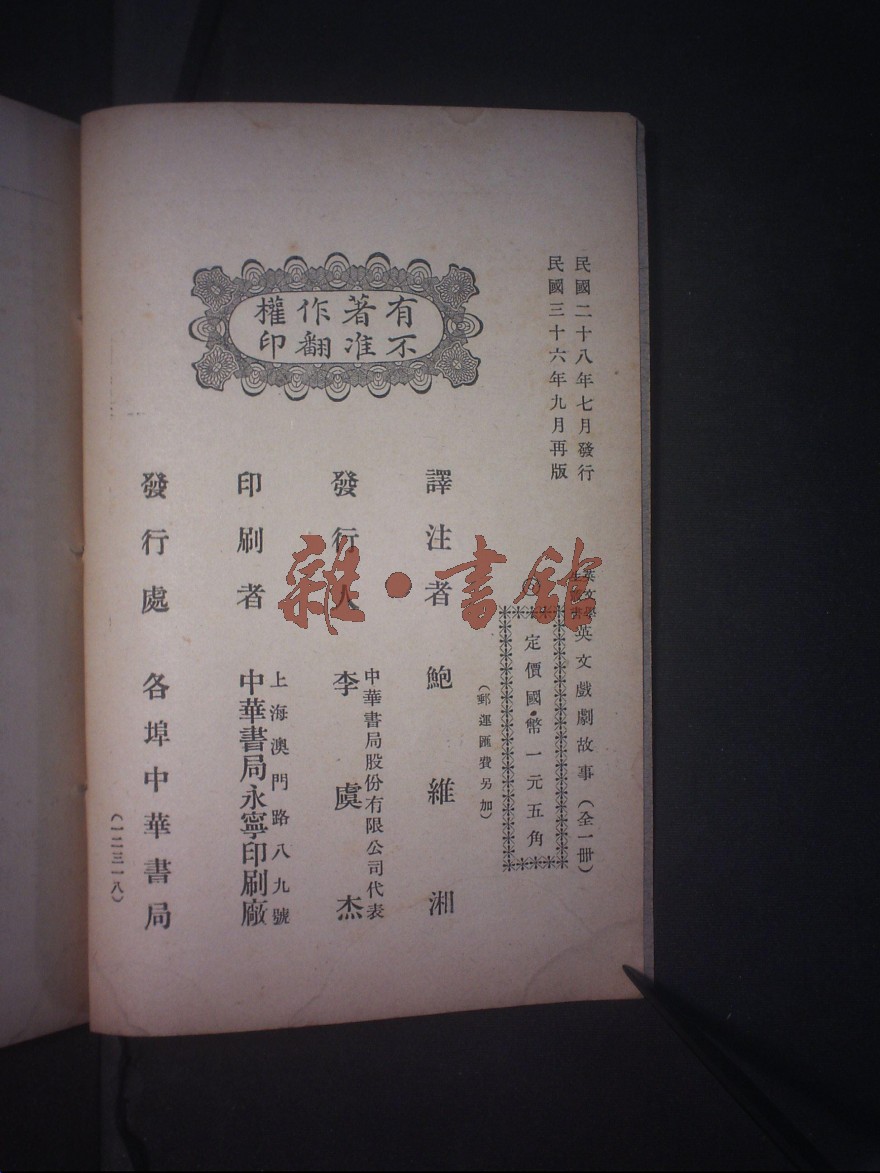 民國二十八年七月發行
民國三十六年九月再版
英文學
生叢書
英文戲劇故事（全一册）
定價國幣一元五角
（郵運匯費另加）
有著作權
不准翻印
譯注者 鮑維湘
發行人 中華書局股份有限公司代表
李虞杰
印刷者 上海澳門路八九號
中華書局永寧印刷廠
發行處 各埠中華書局
（一二三一八）
雜·書館